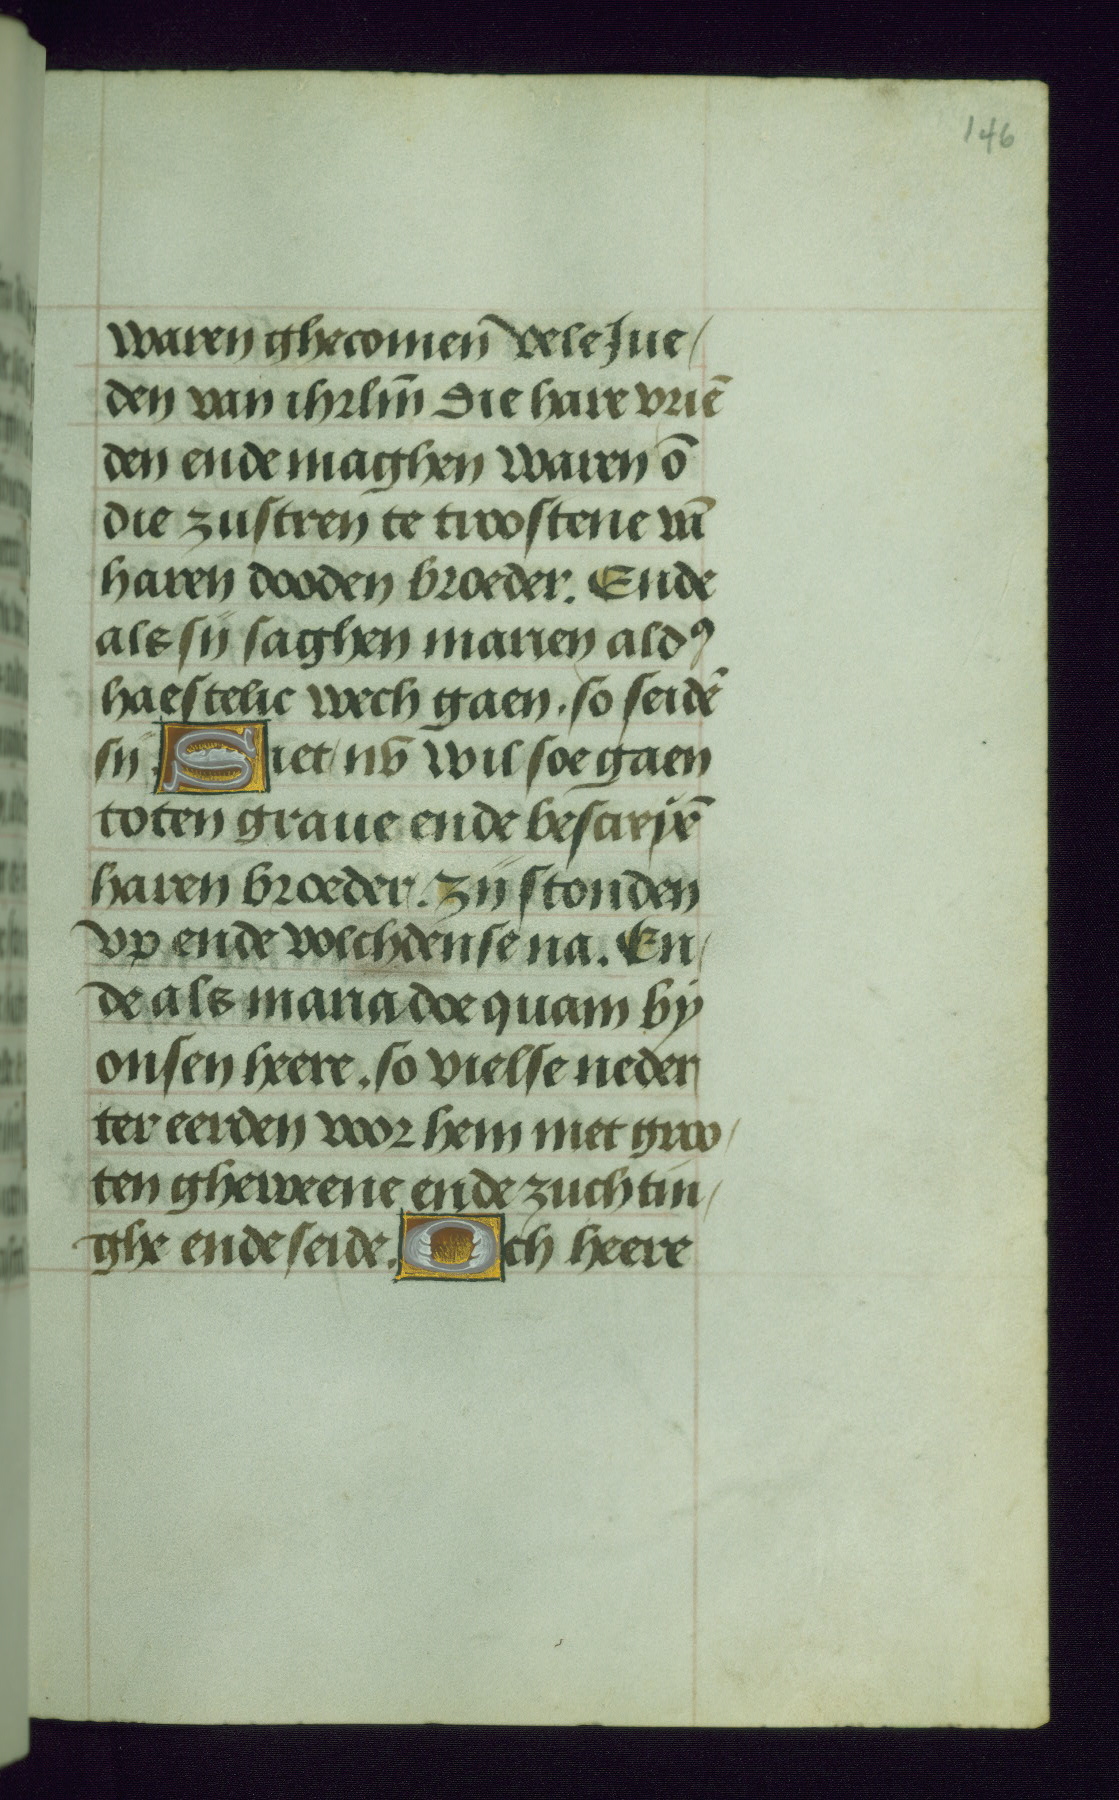 146
waren ghecomen̄ vele Jue/
den van ihrlm̄ Die hare vriē
den ende maghen waren ō
die zustren te troostene vā
haren dooden broeder. Ende
als sij saghen marien aldꝰ
haestelic wech gaen. so seidē
sij. Siet nv̄ wil soe gaen
toten graue ende bescreyē
haren broeder. Zij stonden
vp ende volchdense na. En/
de als maria doe quam by
onsen heere. so vielse neder
ter eerden voor hem met groo/
ten gheweene ende zuchtin/
ghe ende seide. Och heere